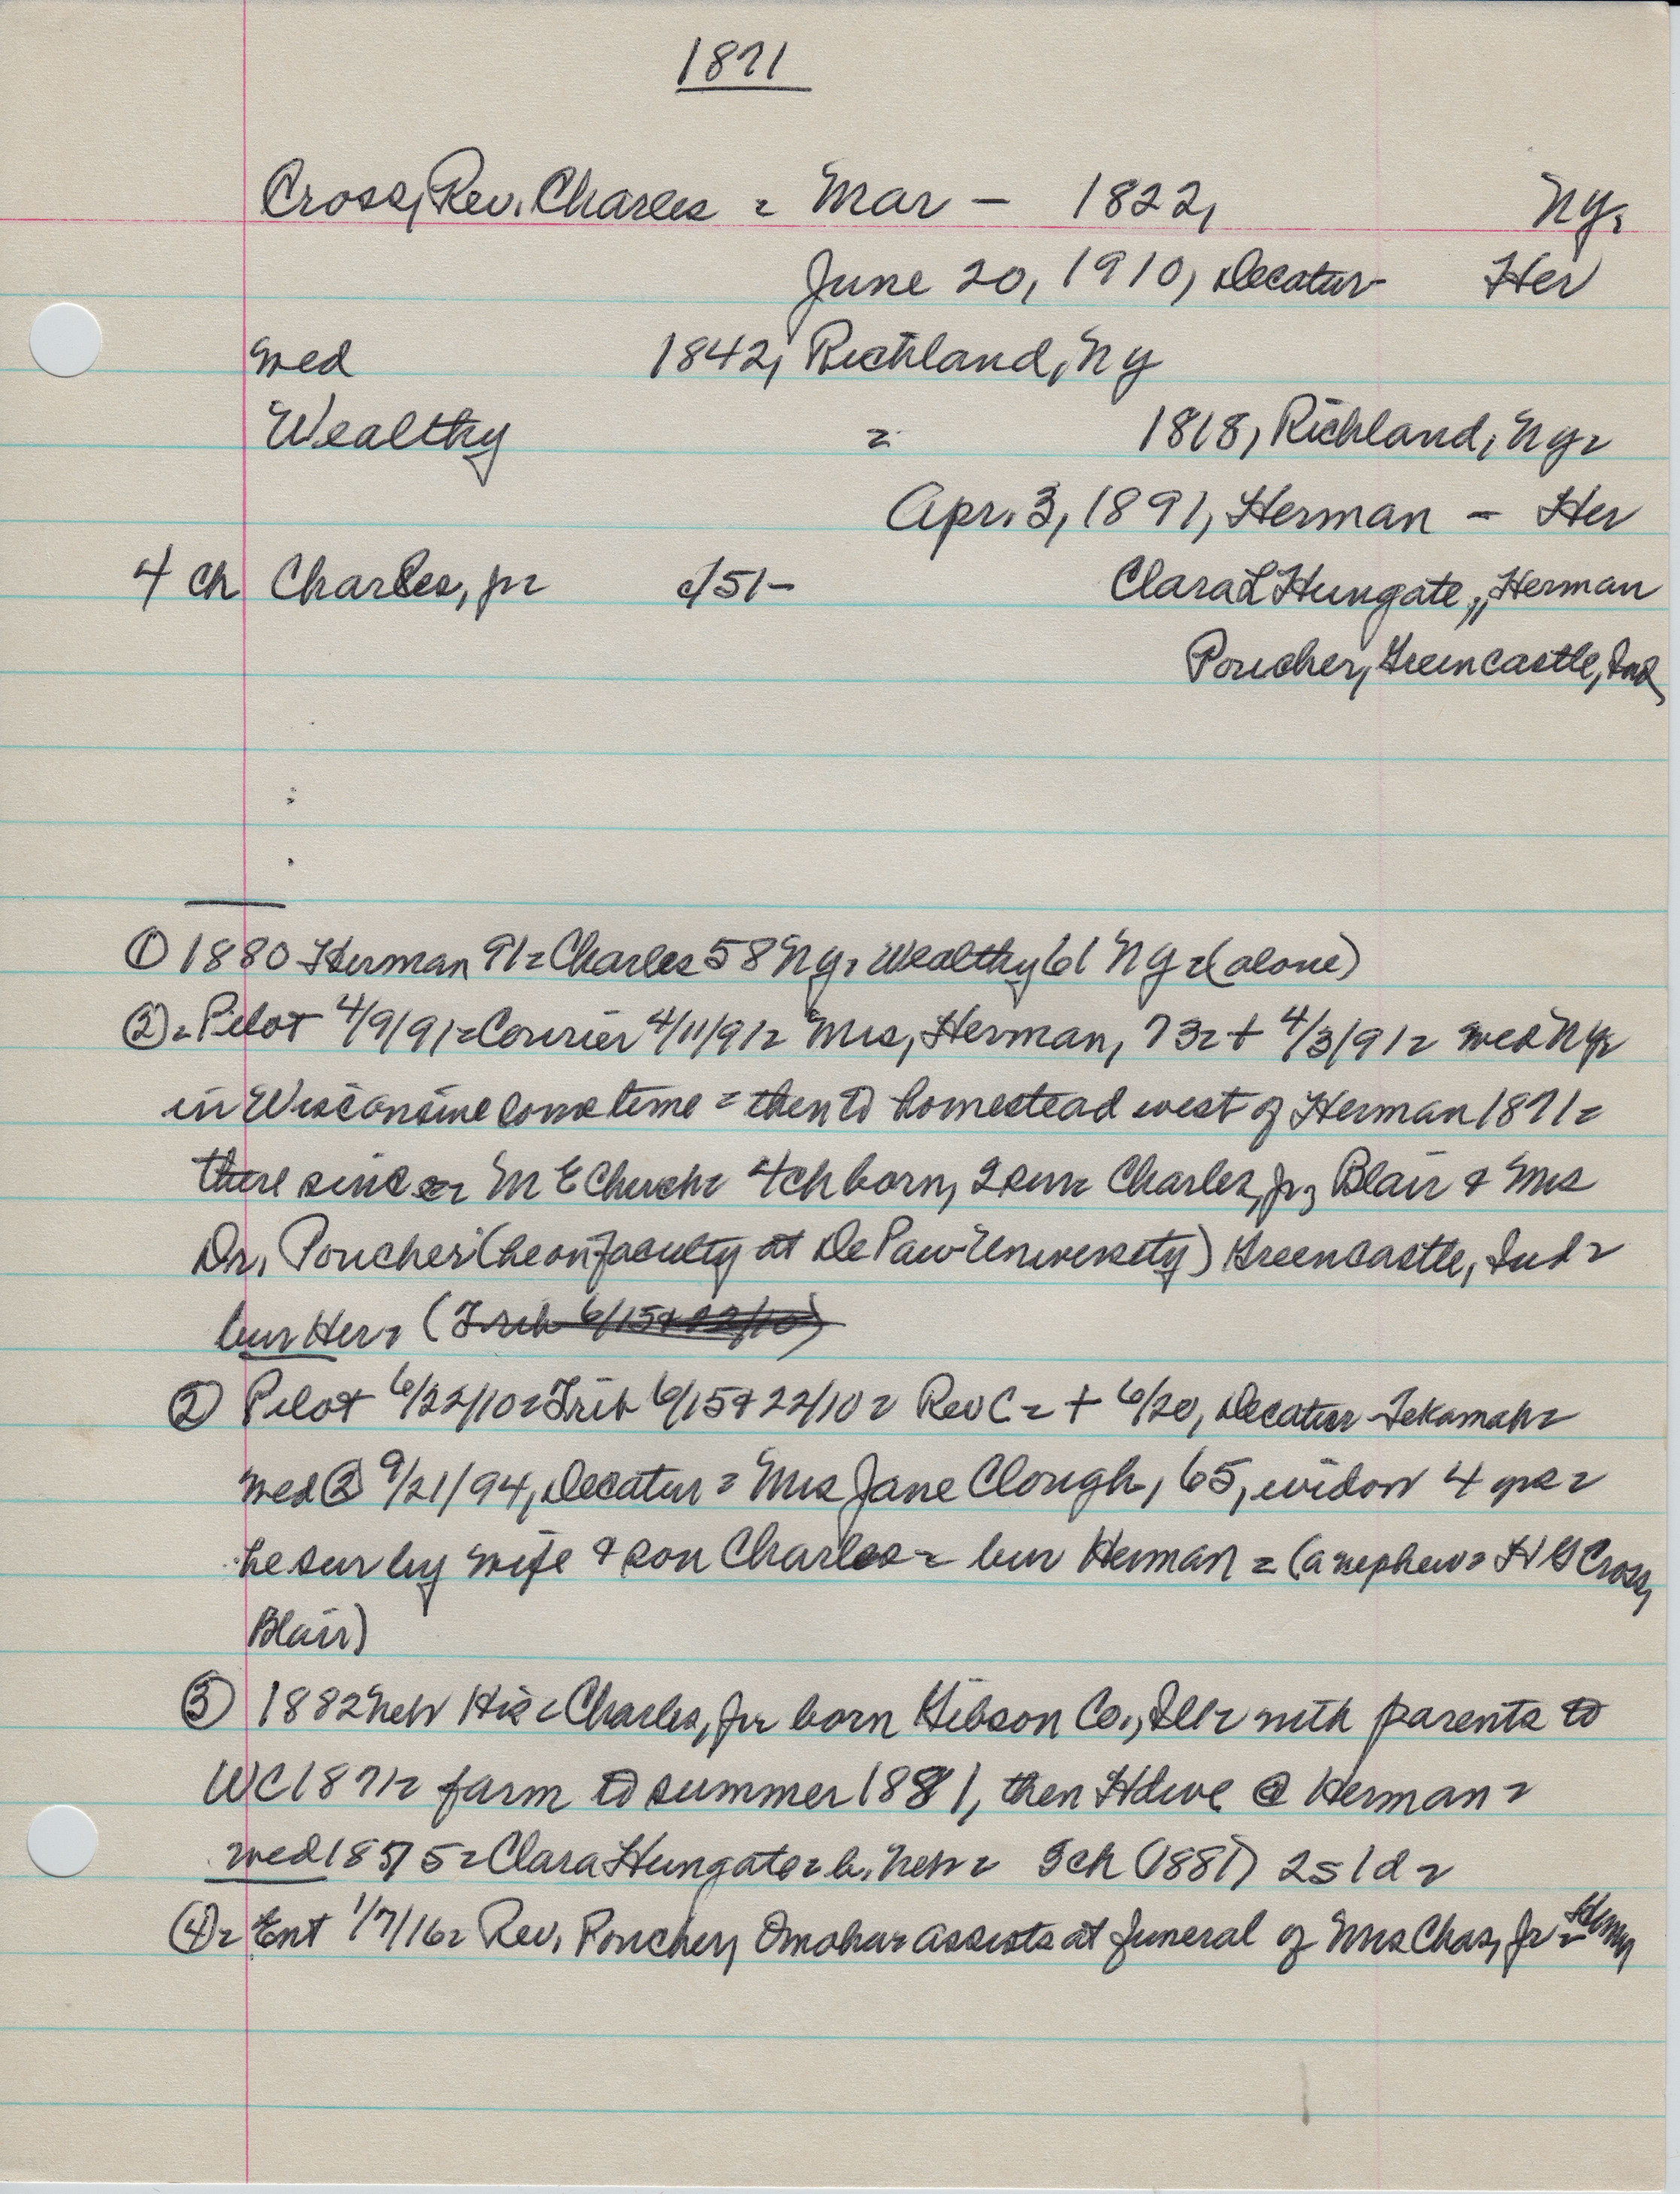 1871
Cross, Rev. Charles = Mar – 1822, NY.
June 20, 1910, Decatur – Her
med 1842, Richland, NY
Wealthy = 1818, Richland, NY =
Apr. 3, 1891, Herman – Her
4 ch Charles, jr = c/51 – Clara L Hungate,, Herman
Poucher, Greencastle, Ind
① 1880 Herman 91 = Charles 58 NY. Wealthy 61 NY = (alone)
②. = Pilot 4/9/91 = Courier 4/11/91 = Mrs, Herman, 73 = + 4/3/91 = med NY =
in Wisconsin some time = then to homestead west of Herman 1871 =
there since = M E Church = 4 ch born, 2 sur = Charles, jr, Blair & Mrs
Dr. Poucher (he on faculty at DePauw University) Greencastle, Ind =
bur Her = (Trib 6/15 & 22/10)
② Pilot 6/22/10 = Trib 6/15 & 22/10 = Rev C = + 6/20, Decatur – Tekamah =
med ② 9/21/94, Decatur = Mrs Jane Clough, 65, widow 4 yrs =
he sur by wife & son Charles = bur Herman = (a nephew = H G Cross,
Blair)
③ 1882 Neb His = Charles, jr born Gibson Co., Ill = with parents to
WC 1871 = farm to summer 1881, then Hdwe @ Herman =
med 1875 = Clara Hungate = b. Neb = 3 ch (1881) 2s 1d =
④ = Ent 1/7/16 = Rev. Poucher, Omaha = assists at funeral of Mrs Chas, Jr =